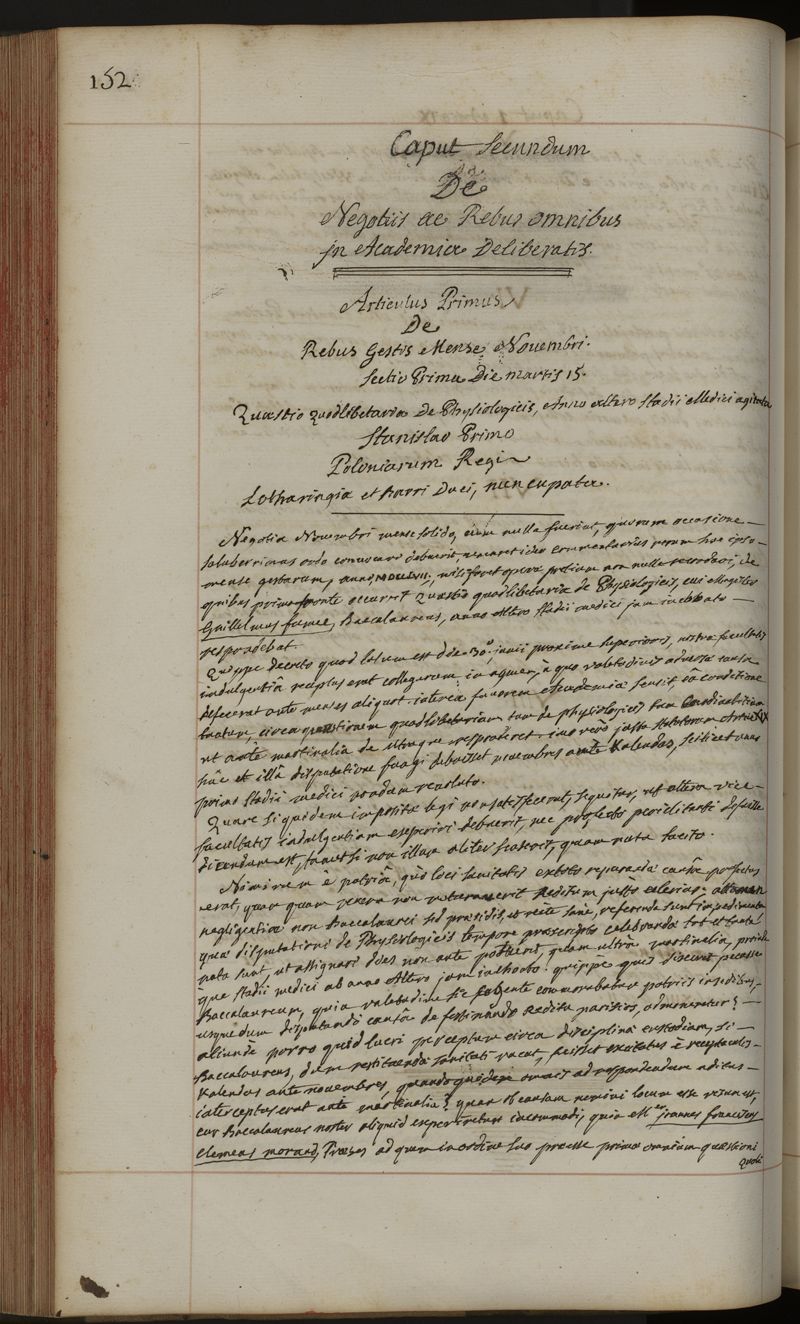 152
Caput Secundum
De
Negotiis ac Rebus omnibus
in Academia Deliberatis.
Articulus Primus
De
Rebus Gestis Mense Novembri.
Sectio Prima Die martis 15.
Quæstio Quodlibetaria De Physiologicis, Anno altero Stadii Medici agitata
Stanislao Primo
Poloniarum Regi
Lotharingiæ et Barri Duci, nuncupata.
Negotia Novembri mense solido, cum nulla fuerint, quorum occasione
saluberrimus ordo convocari debuerit, commentarius rerum hoc ipso
mense gestarum, anno, nisi foret operæ pretium non nulla recordari, de
quibus prima fronte occurrit Quæstio quodlibetaria de Physiologicis, cui Magister
Guillelmus, Baccalaureus, anno altero stadii medici jam inchoato
respondebat.
Quippe decreto quod latum est die 30, junii proxime superioris, nostræ facultatis
indulgentiâ collegarum in agmen, à quo valetudinis adversæ causa
defecerat ante menses aliquot. interea favorem Academiæ sensit, eâ conditione
circa quæstionem quodlibetariam tum de physiologicis tum
ut ante martinalia de utraque responderet. imo vero justa statutorum
hâc et illâ disputatione fungi debuisset novembres ante Kalendas, scilicet anno
primo stadii medici nondum revoluto.
Quare siquidem impositæ legi non satisfecerit, sequitur, ut altera vice
facultatis indulgentiam experiri debuerit, nec
dicendum est, tametsi non illam aliter, quam nutu tacito.
Nimirum è patriâ, quò loci sanitatis causâ profectus
erat, quam quam non reditum justo celerius. attamen
negligentiæ non Baccalaurei sed præsidis, ut recte sane, referenda sunt impedimenta
quæ disputationi de Physiologicis tempore præscripto celebranda tot et tanta
nata sunt, ut assignari dies non ante potuerit, quam ultra martinalia,
que stadii medici ab anno altero jam inchoato. quippe quis
Baccalaureum, quia valetudine commorabatur patriis in sedibus,
usquedum disputandi causâ de festinando reditu parisios, admoneretur?
aliunde porro quid lucri circa disciplinæ custodiam, si
Baccalaureus, dum restituendæ sanitati vacat,
Kalendas ante novembres, quandoquidem omnis ad respondendum aditus
interceptus erat ante martinalia? quam ob causam nemini locum esse visum est,
cur Baccalaureus noster aliquid experiretur incommodi, quia est joannes franciscus
clemens morand, Præses ad quem in ordine suo præesse primæ omnium quæstioni
quodli